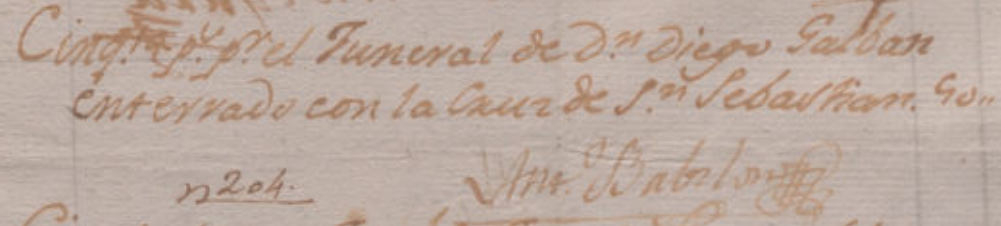 Cinqta ps. pr el Funeral de Dn Diego Galban
enterrado con la Cruz de Sn Sebastian. 50..
n 204. Anto.